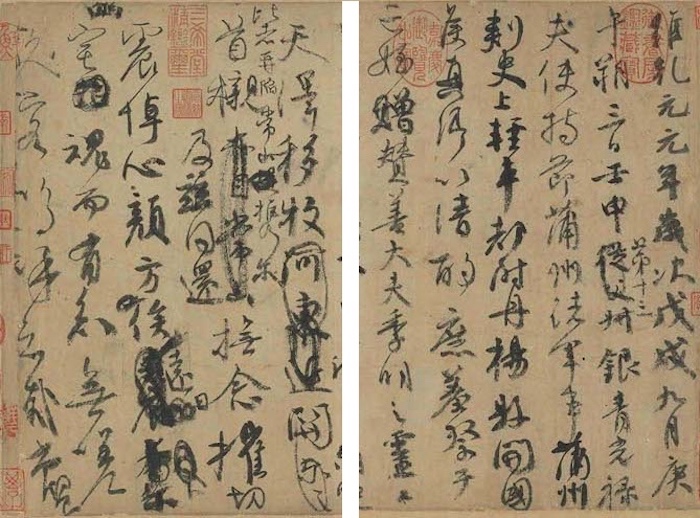 維乾元元年歲次戊戌九月庚
午朔三日壬申第十三從父銀青光祿
夫使持節蒲州諸軍事蒲州
刺史上輕車都尉丹楊縣開國
侯真卿以清酌庶羞祭于
亡姪贈贊善大夫季明之靈曰
天澤移牧河東近
比者再陷常山攜爾
首櫬亦自常山撫念摧切
及茲同還
震悼心顏方俟遠日
宅魂而有知無嗟
久客嗚呼哀哉尚饗